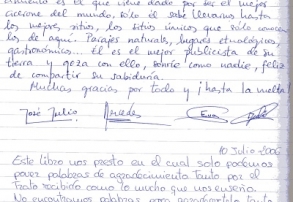 es el que viene dado por ser el mejor
cicerone del mundo, sólo él sabe llevarnos hasta
los mejores sitios, los sitios únicos que sólo conocen
los de aquí. Parajes naturales, lugares etnológicos,
gastronómicos... él es el mejor publicista de su
tierra y goza con ello, sonríe como nadie, feliz
de compartir su sabiduría.
Muchas gracias por todo y ¡hasta la vuelta!
José Julio Mercedes Eva
10 Julio-2006
Este libro nos presto en el cual solo podemos
poner palabras de agradecimiento tanto por el
trato recibido como lo mucho que nos enseña.
No encontramos palabras para agradecerle tanto